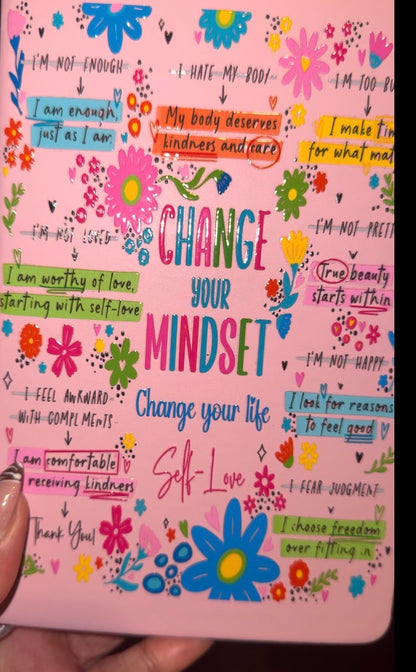 I'M NOT ENOUGH
I am enough,
just as I am
I HATE MY BODY
My body deserves
kindness and care
I'M TOO BU
I make tim
for what mat
I'M NOT LOVED
I am worthy of love,
starting with self-love
CHANGE
YOUR
MINDSET
Change your life
Self-Love
I'M NOT PRETT
True beauty
starts within
I'M NOT HAPPY
I look for reasons
to feel good
I FEEL AWKWARD
WITH COMPLMENTS
I am comfortable
receiving kindness
Thank You!
I FEAR JUDGMENT
I choose freedom
over fitting in